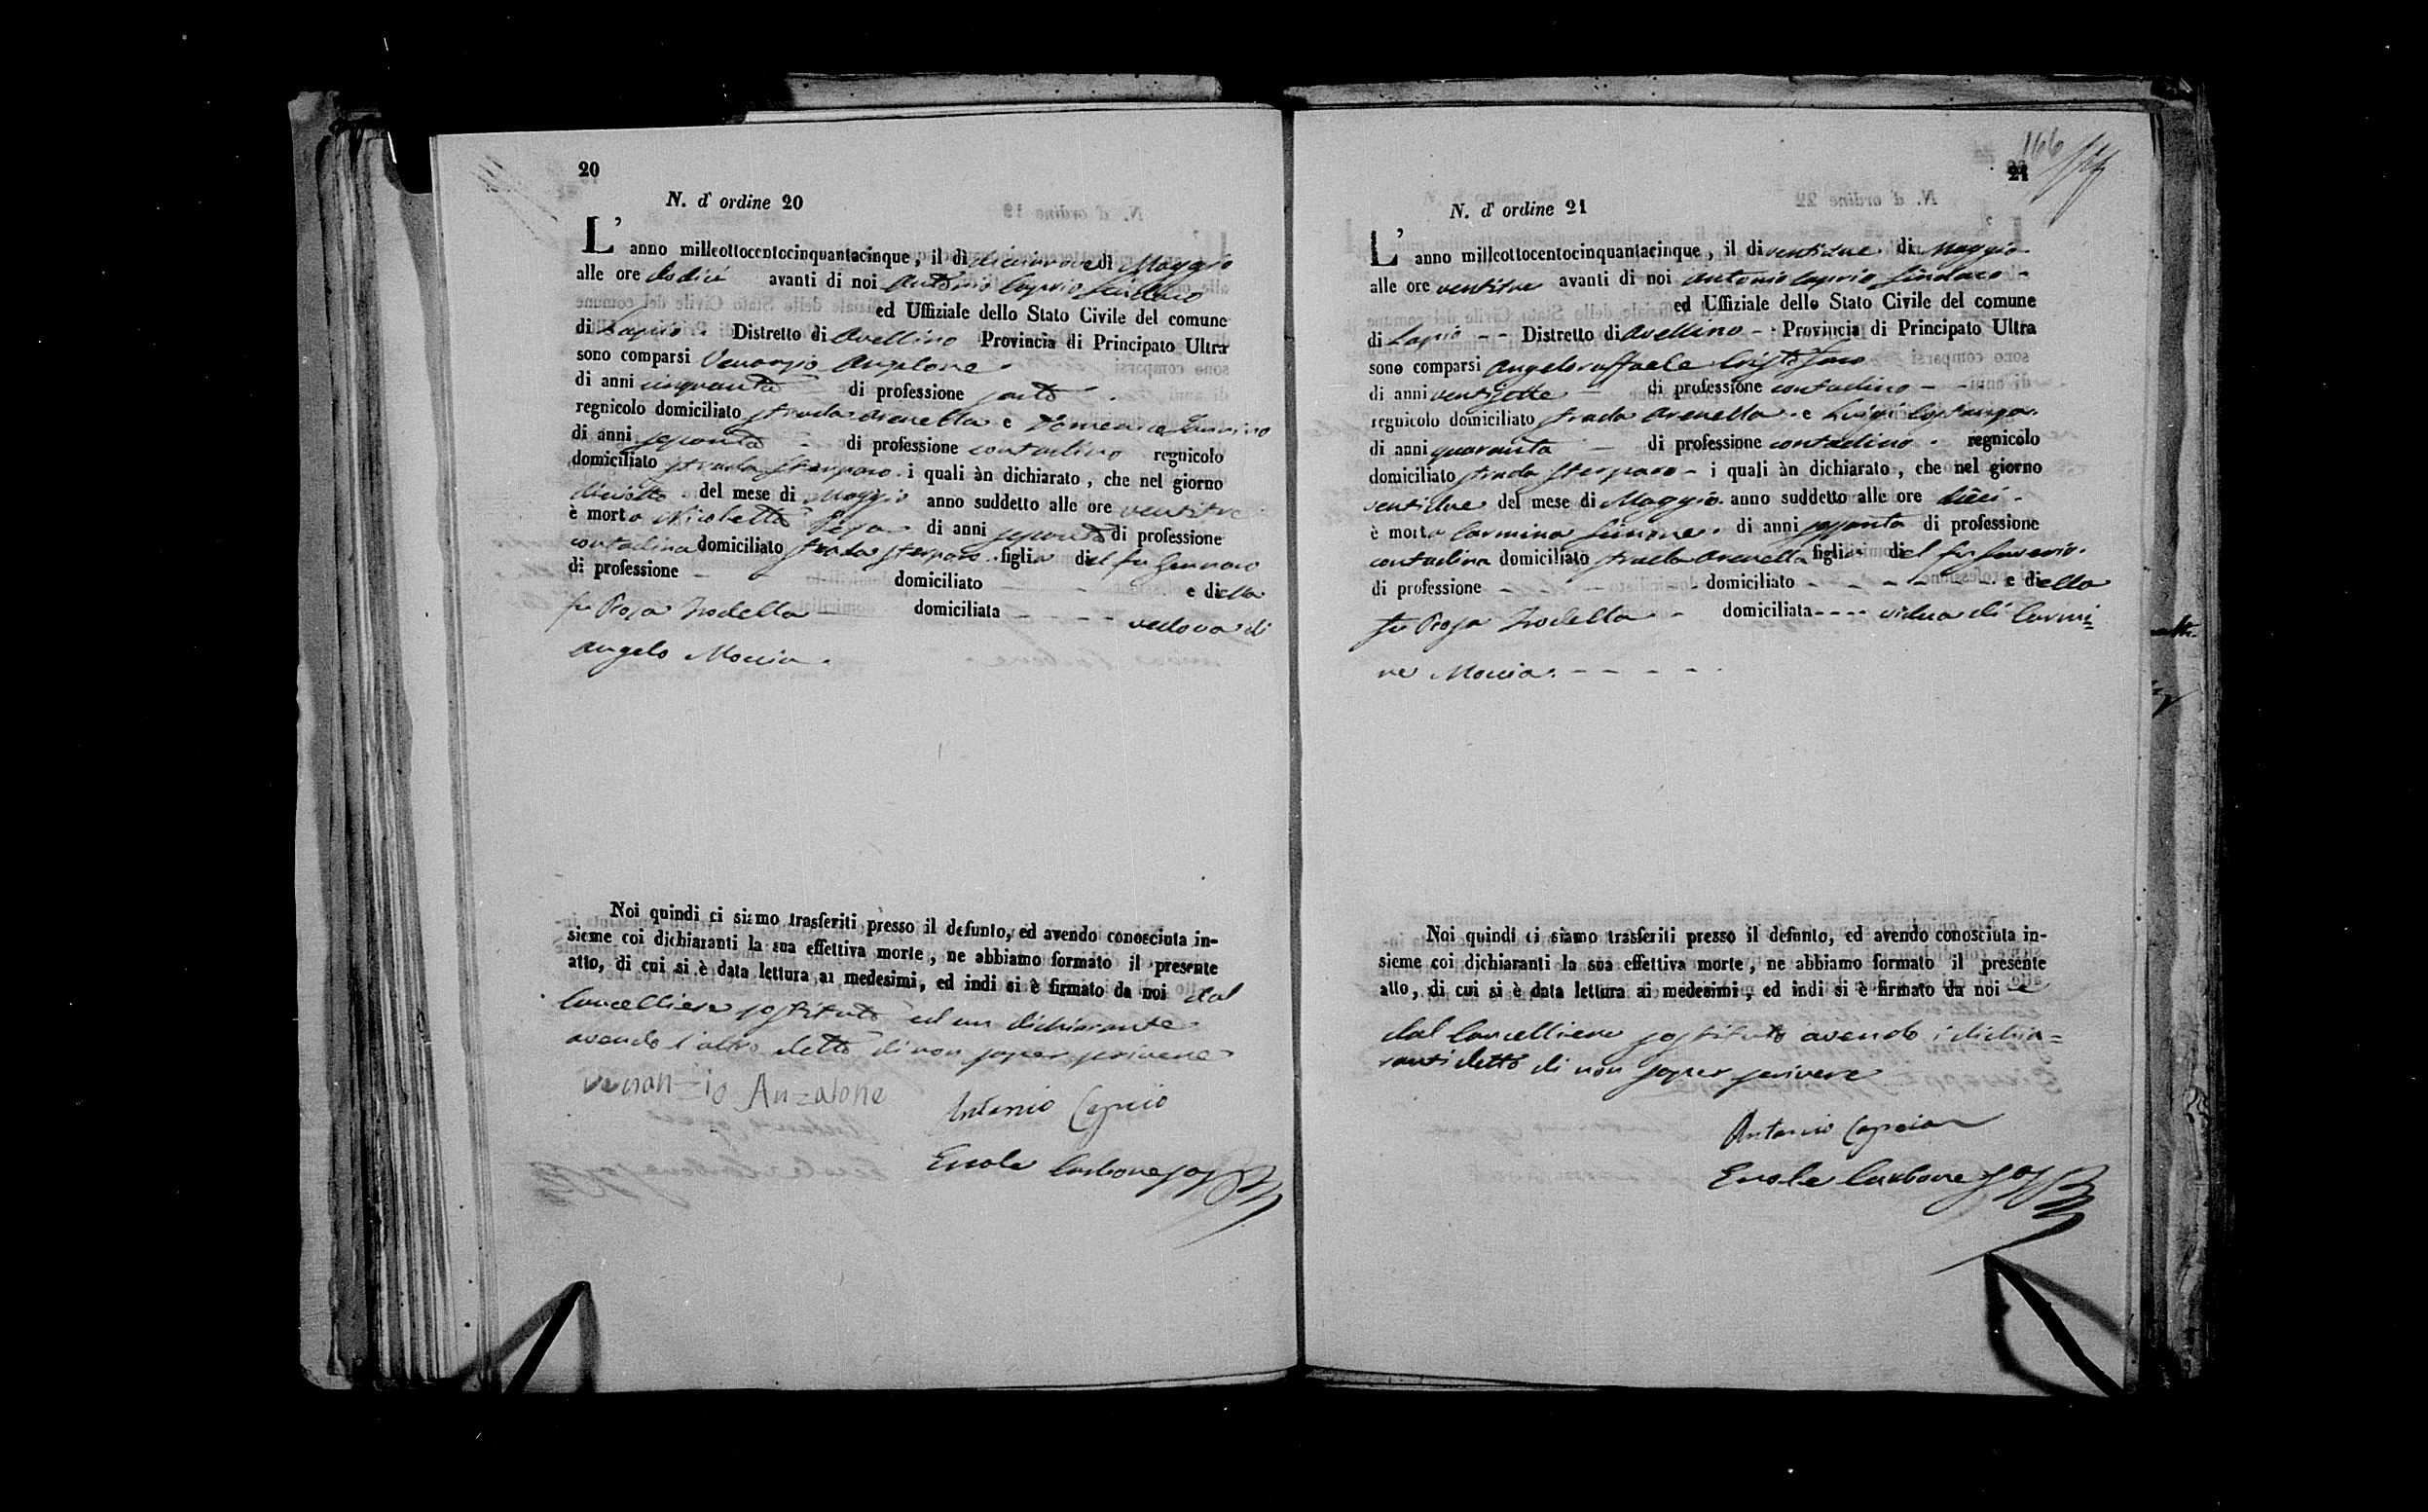 20
N. d' ordine 20
L' anno milleottocentocinquantacinque, il dì diciannove di Maggio
alle ore dodici avanti di noi Antonio Caprio Sindaco
ed Uffiziale dello Stato Civile del comune
di Lapio. Distretto di Avellino Provincia di Principato Ultra
sono comparsi Venanzio Anzalone
di anni cinquanta di professione sarto
regnicolo domiciliato strada Arenella e Domenico
di anni sessanta di professione contadino regnicolo
domiciliato strada Sterparo i quali àn dichiarato, che nel giorno
diciotto del mese di Maggio anno suddetto alle ore ventitre
è morta Nicoletta di anni sessanta di professione
contadina domiciliato strada Sterparo figlia del fu Gennaro
di professione - - domiciliato - - e della
fu Rosa Trodella domiciliata - - - - vedova di
Angelo Moccia.
Noi quindi ci siamo trasferiti presso il defunto, ed avendo conosciuta in-
sieme coi dichiaranti la sua effettiva morte, ne abbiamo formato il presente
atto, di cui si è data lettura ai medesimi, ed indi si è firmato da noi dal
Cancelliere sostituto ed un dichiarante
avendo l'altro detto di non saper scrivere
venanzio Anzalone
Antonio Caprio
Ercole Carbone sos
166
21
N. d' ordine 21
L' anno milleottocentocinquantacinque, il di ventidue di Maggio
alle ore ventitre avanti di noi Antonio Caprio Sindaco -
ed Uffiziale dello Stato Civile del comune
di Lapio - - Distretto di Avellino - - Provincia di Principato Ultra
sono comparsi Angeloraffaele Cristofaro
di anni ventisette - di professione contadino - -
regnicolo domiciliato strada Arenella e Luigi Costanza
di anni quaranta - di professione contadino - regnicolo
domiciliato strada Sterparo - i quali àn dichiarato, che nel giorno
ventidue del mese di Maggio anno suddetto alle ore dieci -
è morta Carmina Simone di anni sessanta di professione
contadina domiciliato strada Arenella figlia del fu Saverio.
di professione - - - domiciliato - - - - - e della
fu Rosa Trodella - - domiciliata - - - - vidua di Carmi=
ne Moccia. - - - - -
Noi quindi ci siamo trasferiti presso il defunto, ed avendo conosciuta in-
sieme coi dichiaranti la sua effettiva morte, ne abbiamo formato il presente
atto, di cui si è data lettura ai medesimi, ed indi si è firmato da noi e
dal Cancelliere sostituto avendo i dichia=
ranti detto di non saper scrivere
Antonio Caprio
Ercole Carbone sos